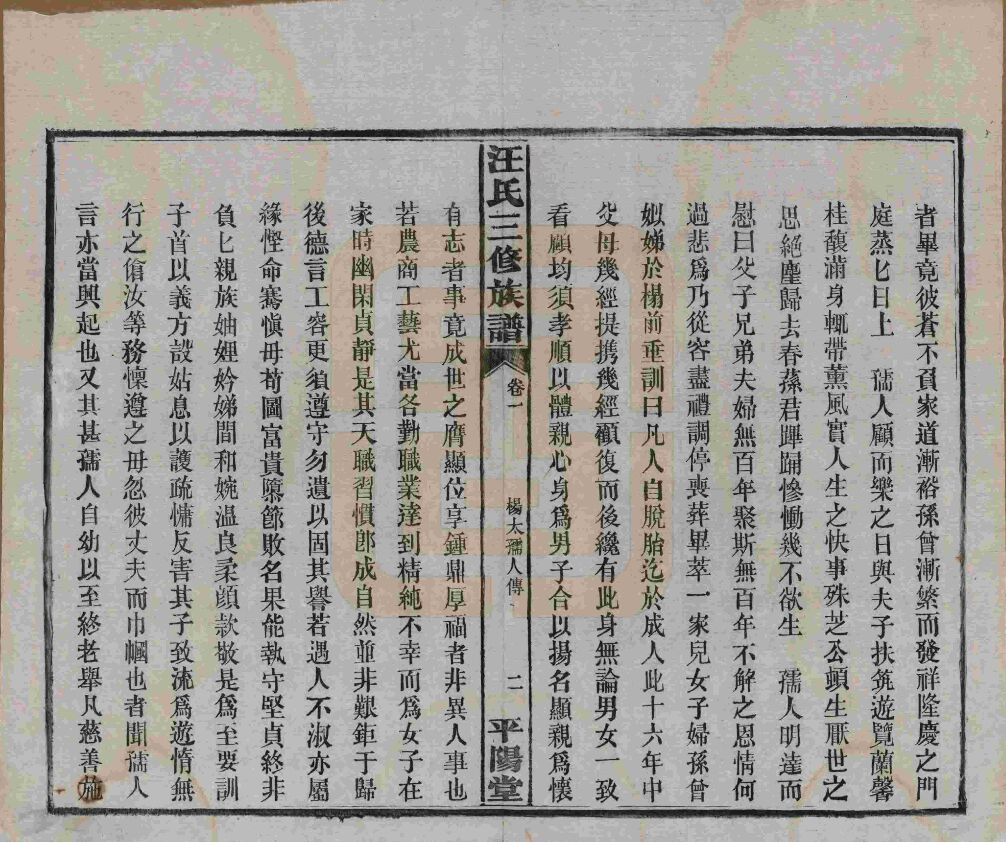 者畢竟彼蒼不負家道漸裕孫曾漸繁而發祥隆慶之門
庭蒸匕日上　孺人顧而樂之日與夫子扶筑遊覽蘭馨
桂馥滿身輒帶薰風實人生之快事殊芝荃頭生厭世之
思絕塵歸去春蓀君踭踊慘慟幾不欲生　孺人明達而
慰曰父子兄弟夫婦無百年聚斯無百年不解之恩情何
過悲爲乃從容盡禮調停喪葬畢萃一家兒女子婦孫曾
姒娣於榻前垂訓曰凡人自脫胎迄於成人此十六年中
父母幾經提携幾經顧復而後纔有此身無論男女一致
看顧均須孝順以體親心身爲男子合以揚名顯親爲懷
汪氏三修族譜　卷一　楊太孺人傳　二　平陽堂
有志者事竟成世之膺顯位享鍾鼎厚福者非異人事也
若農商工藝尤當各勤職業達到精純不幸而爲女子在
家時幽閑貞靜是其天職習慣卽成自然並非艱鉅于歸
後德言工容更須遵守勿遺以固其譽若遇人不淑亦屬
緣慳命騫愼毋苟圖富貴隳節敗名果能執守堅貞終非
負匕親族妯娌妗娣間和婉温良柔顔款敬是爲至要訓
子首以義方設姑息以護疏慵反害其子致流爲遊惰無
行之傖汝等務懍遵之毋忽彼丈夫而巾幗也者聞孺人
言亦當興起也又其甚孺人自幼以至終老舉凡慈善施